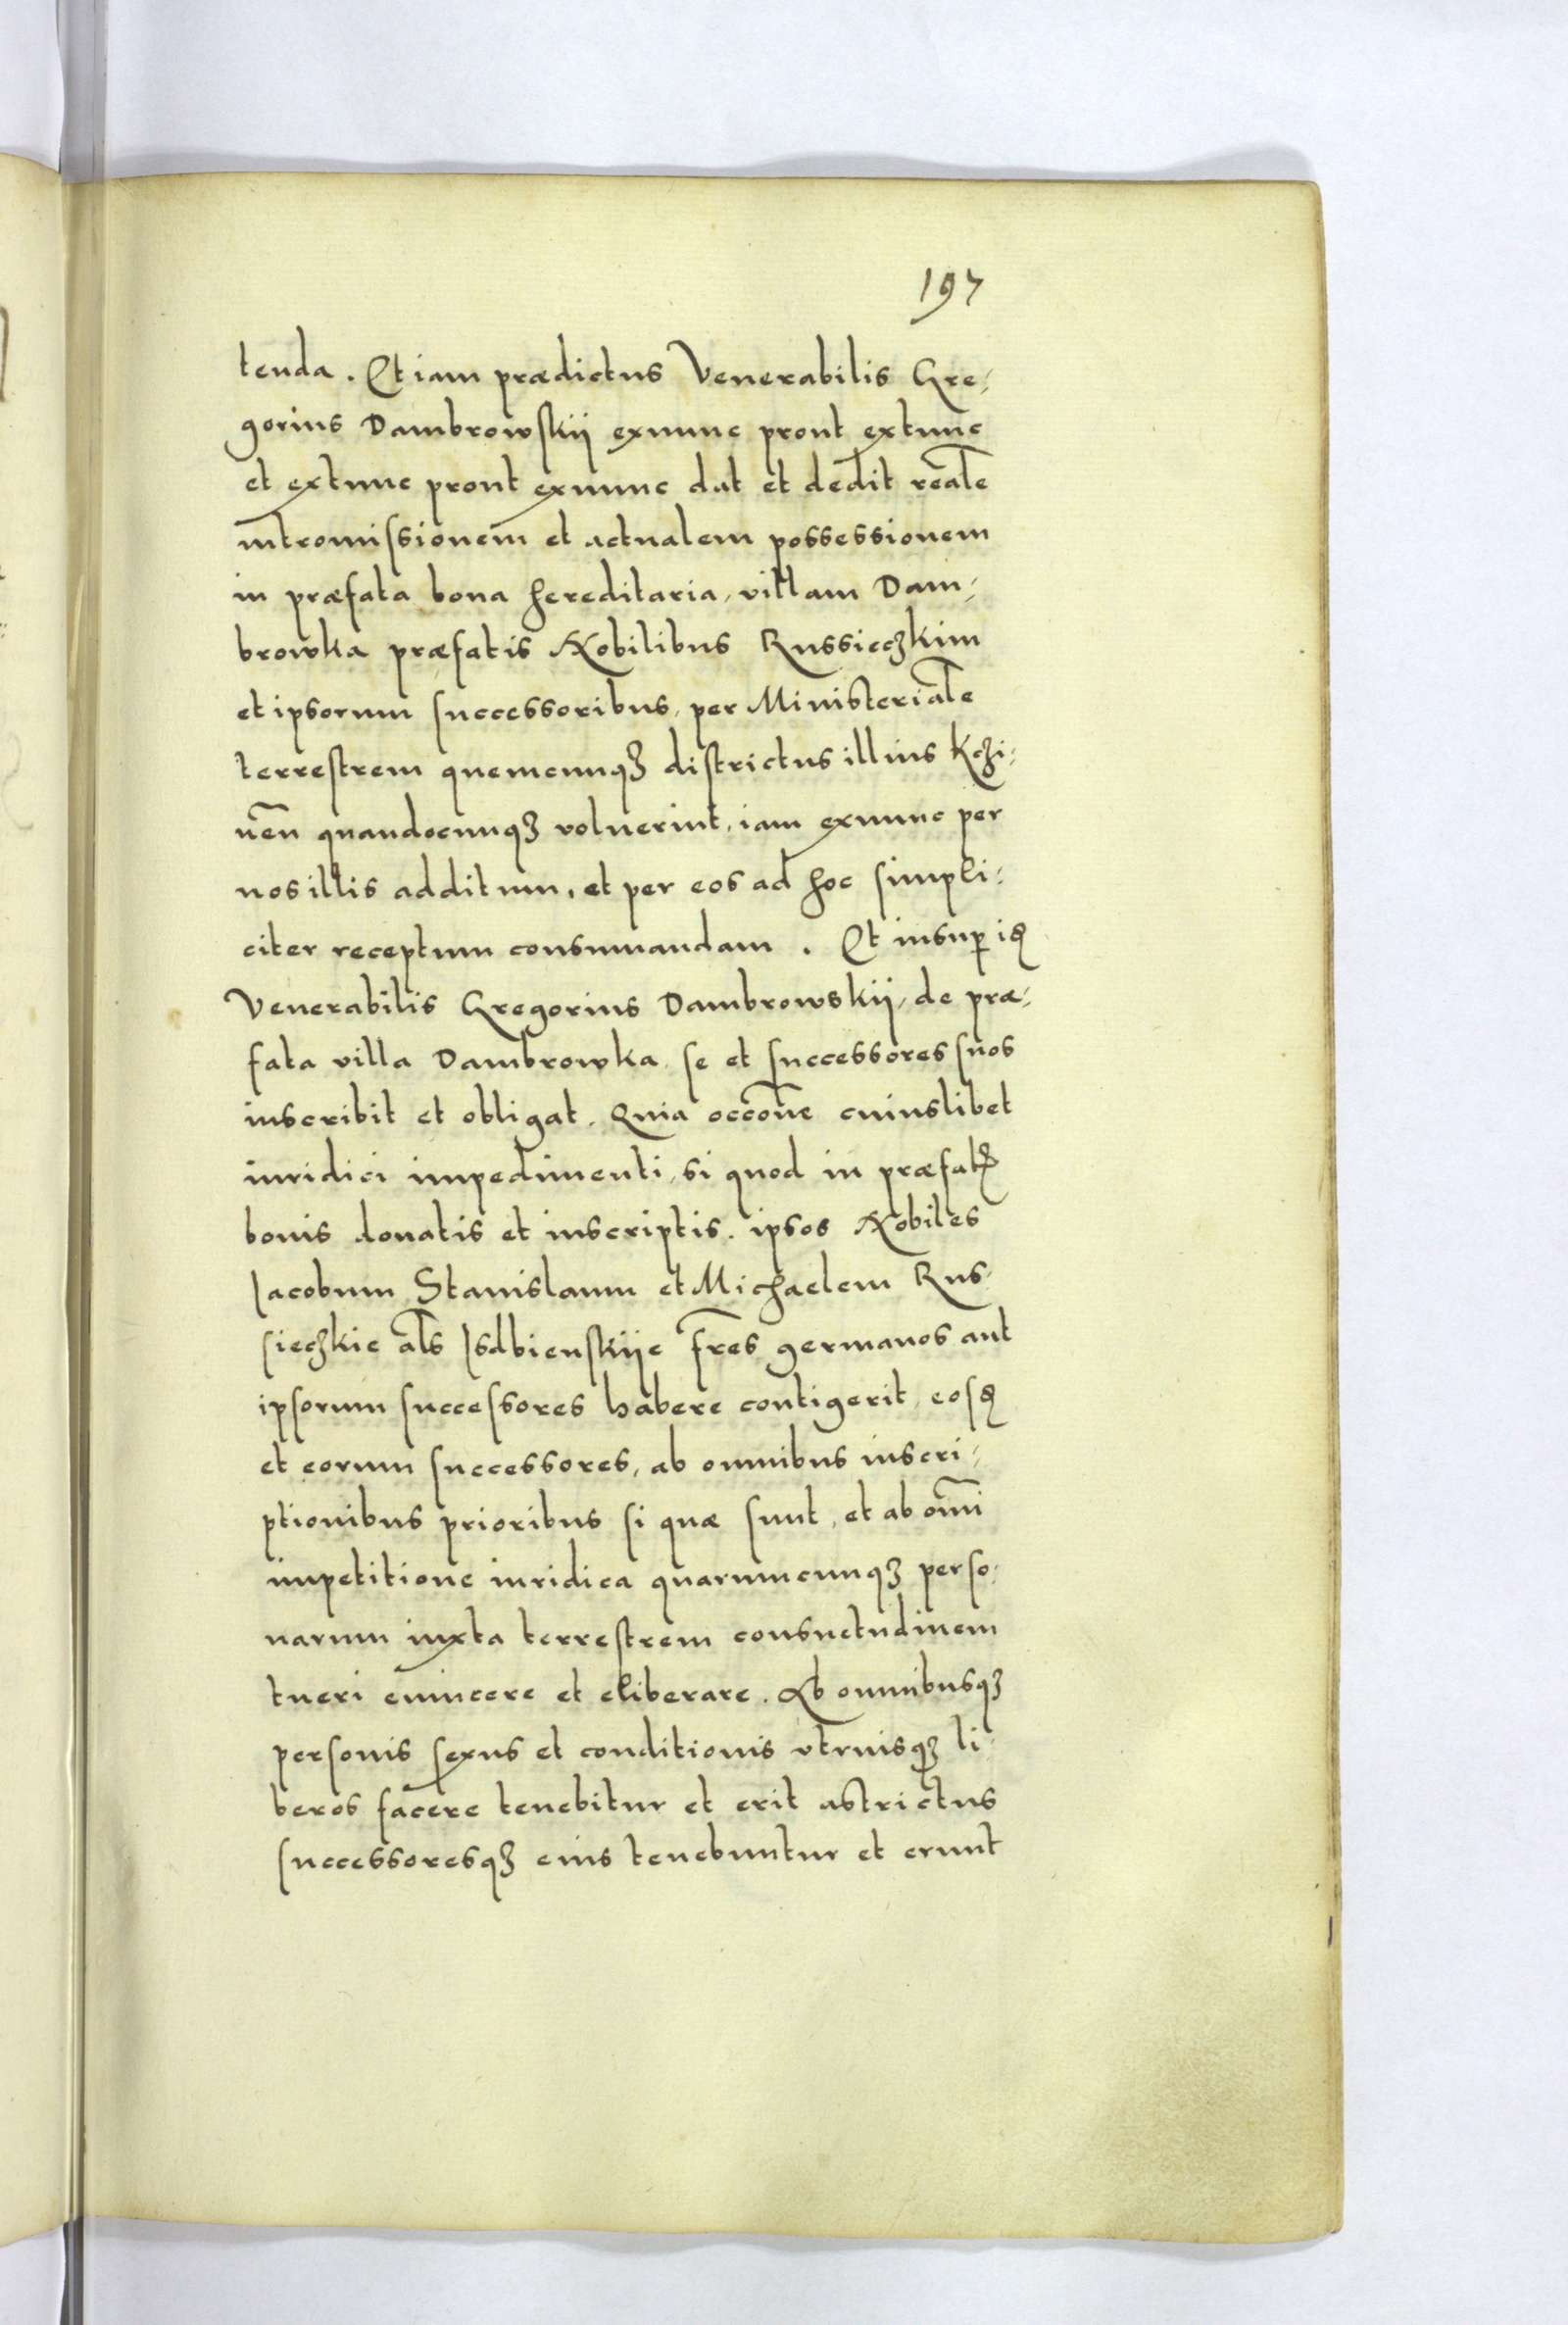 197
tenda. Et iam prædictus Venerabilis Gre-
gorius Dambrowskij exnunc prout extunc
et extunc prout exnunc dat et dedit realē
intromissionem et actualem possessionem
in præfata bona hereditaria, villam Dam-
browka præfatis Nobilibus Russieczkim
et ipsorum successoribus, per Ministerialē
terrestrem quemcunqꝫ districtus illius Kczi-
nēn quandocunqꝫ voluerint, iam exnunc per
nos illis additum, et per eos ad hoc simpli-
citer receptum consumandam. Et insuper idē
Venerabilis Gregorius Dambrowskij, de præ-
fata villa Dambrowka, se et successores suos
inscribit et obligat. Quia occōne cuiuslibet
iuridici impedimenti, si quod in præfatꝭ
bonis donatis et inscriptis. ipsos Nobiles
Jacobum Stanislaum et Michaelem Rus-
sieczkie als̄ Isdbienskije fr̄es germanos aut
ipsorum successores habere contigerit, eosdē
et eorum successores, ab omnibus inscri-
ptionibus prioribus si quæ sunt, et ab om̄i
impetitione iuridica quarumcunqꝫ perso-
narum iuxta terrestrem consuetudinem
tueri euincere et eliberare. Ab omnibusqꝫ
personis sexus et conditionis vtriusqꝫ li-
beros facere tenebitur et erit astrictus
successoresqꝫ eius tenebuntur et erunt